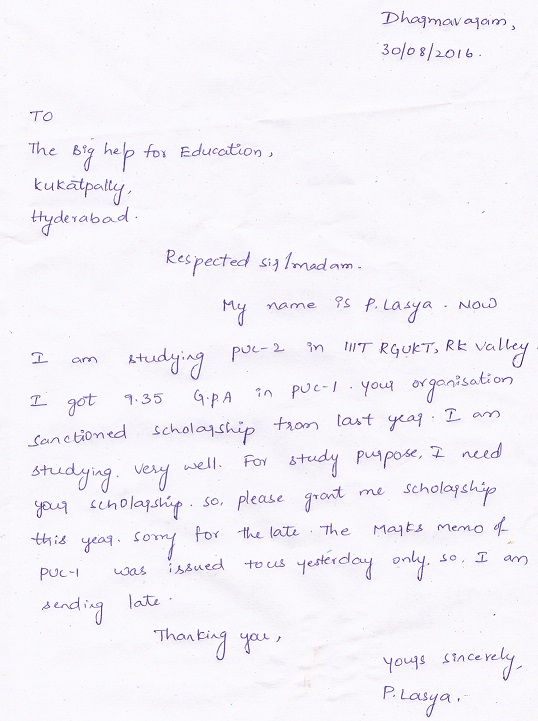 Dharmavaram,
30/08/2016.
TO
The Big help for Education,
kukatpally,
Hyderabad.
Respected sir/madam.
My name is P. Lasya. Now
I am studying PUC-2 in IIIT RGUKT, RK valley.
I got 9.35 G.P.A in PUC-1. your organisation
sanctioned scholarship from last year. I am
studying. very well. For study purpose, I need
your scholarship. so, please grant me scholarship
this year. sorry for the late. The Marks memo of
PUC-1 was issued to us yesterday only. so. I am
sending late.
Thanking you,
yours sincerely,
P. Lasya.